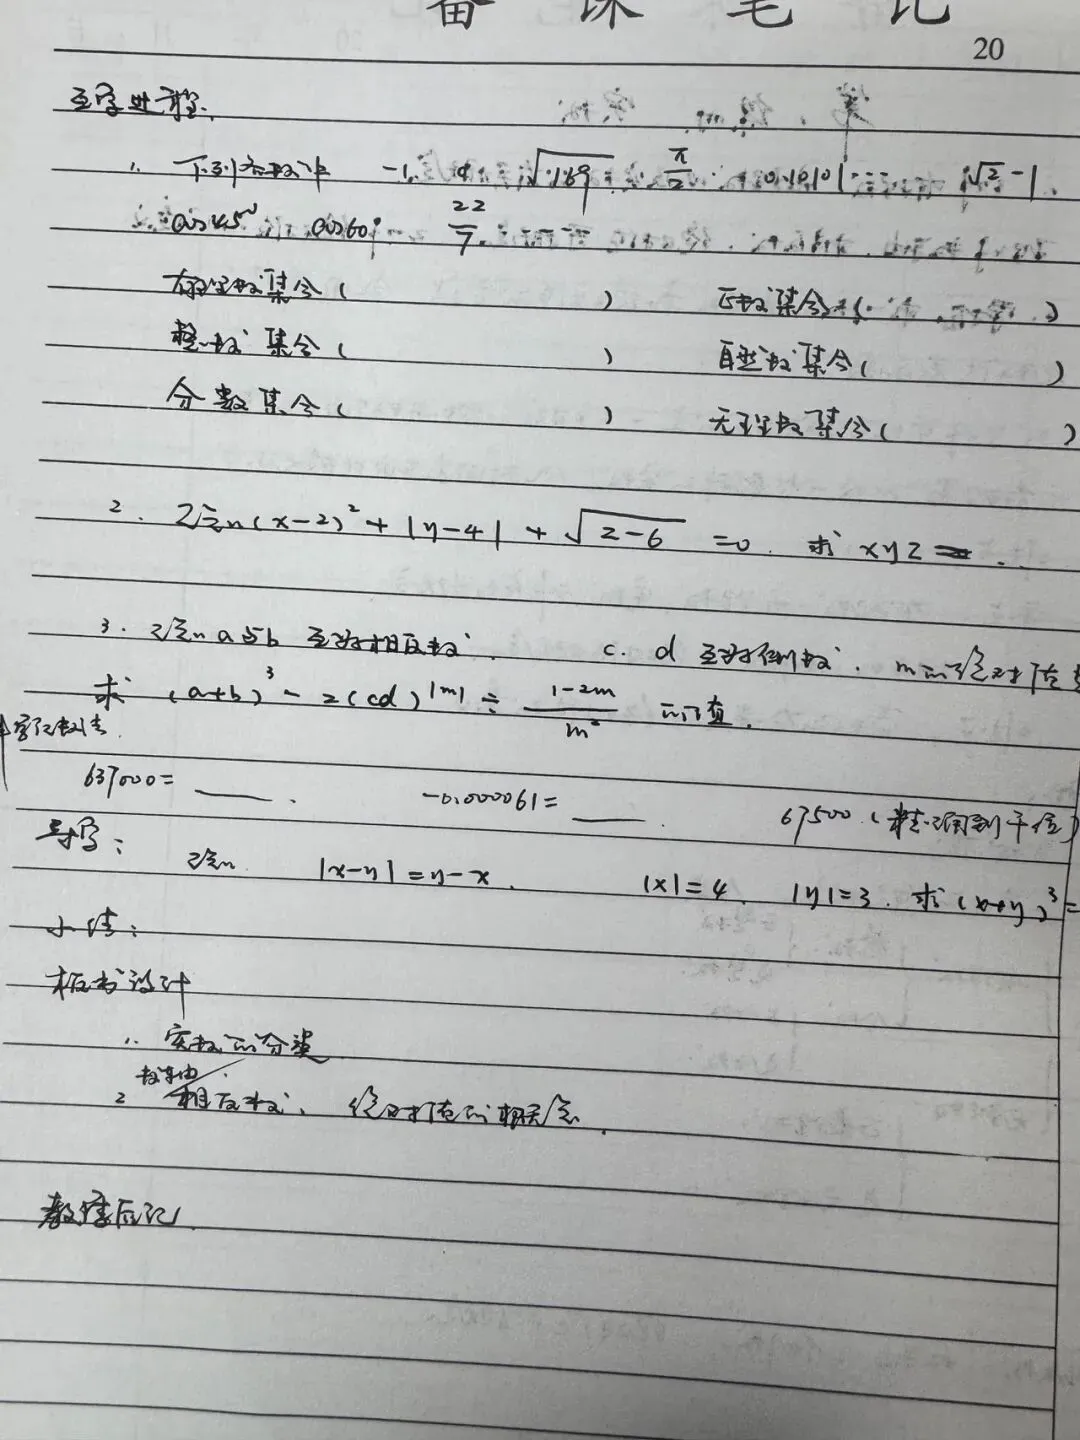 备课笔记
20
互导进程:
1. 下列各数中 -1, 0, √1.69, π/2, 0.10101……, √2-1
cos45° cos60° 22/7
有理数集合( ) 正数集合( )
整数集合( ) 自然数集合( )
分数集合( ) 无理数集合( )
2. 已知(x-2)²+|y-4|+√z-6 =0. 求 xyz
3. 已知a与b 互为相反数. c. d 互为倒数. m的绝对值
求 (a+b)³-2(cd)|m|÷ 1-2m/m² 的值.
学记数法
637000= ___. -0.000061= ___. 67500 (精确到千位)
导写: 已知 |x-y|=y-x. |x|=4. |y|=3. 求(x+y)³=
小结:
板书设计
1. 实数的分类
数轴
2 相反数、绝对值的概念.
教学后记